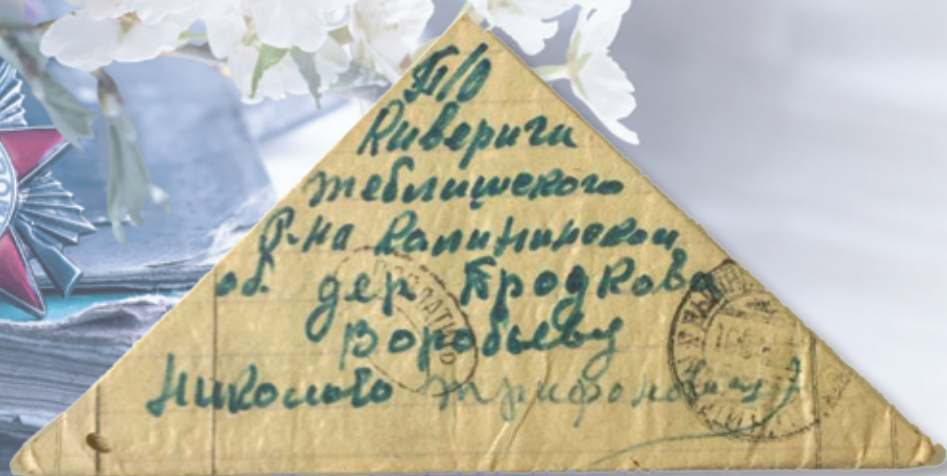 П/О
Киверичи
Теблишского
Р-на Калининской
об. дер Бродкова
Воробьеву
Николаю Трифоновичу